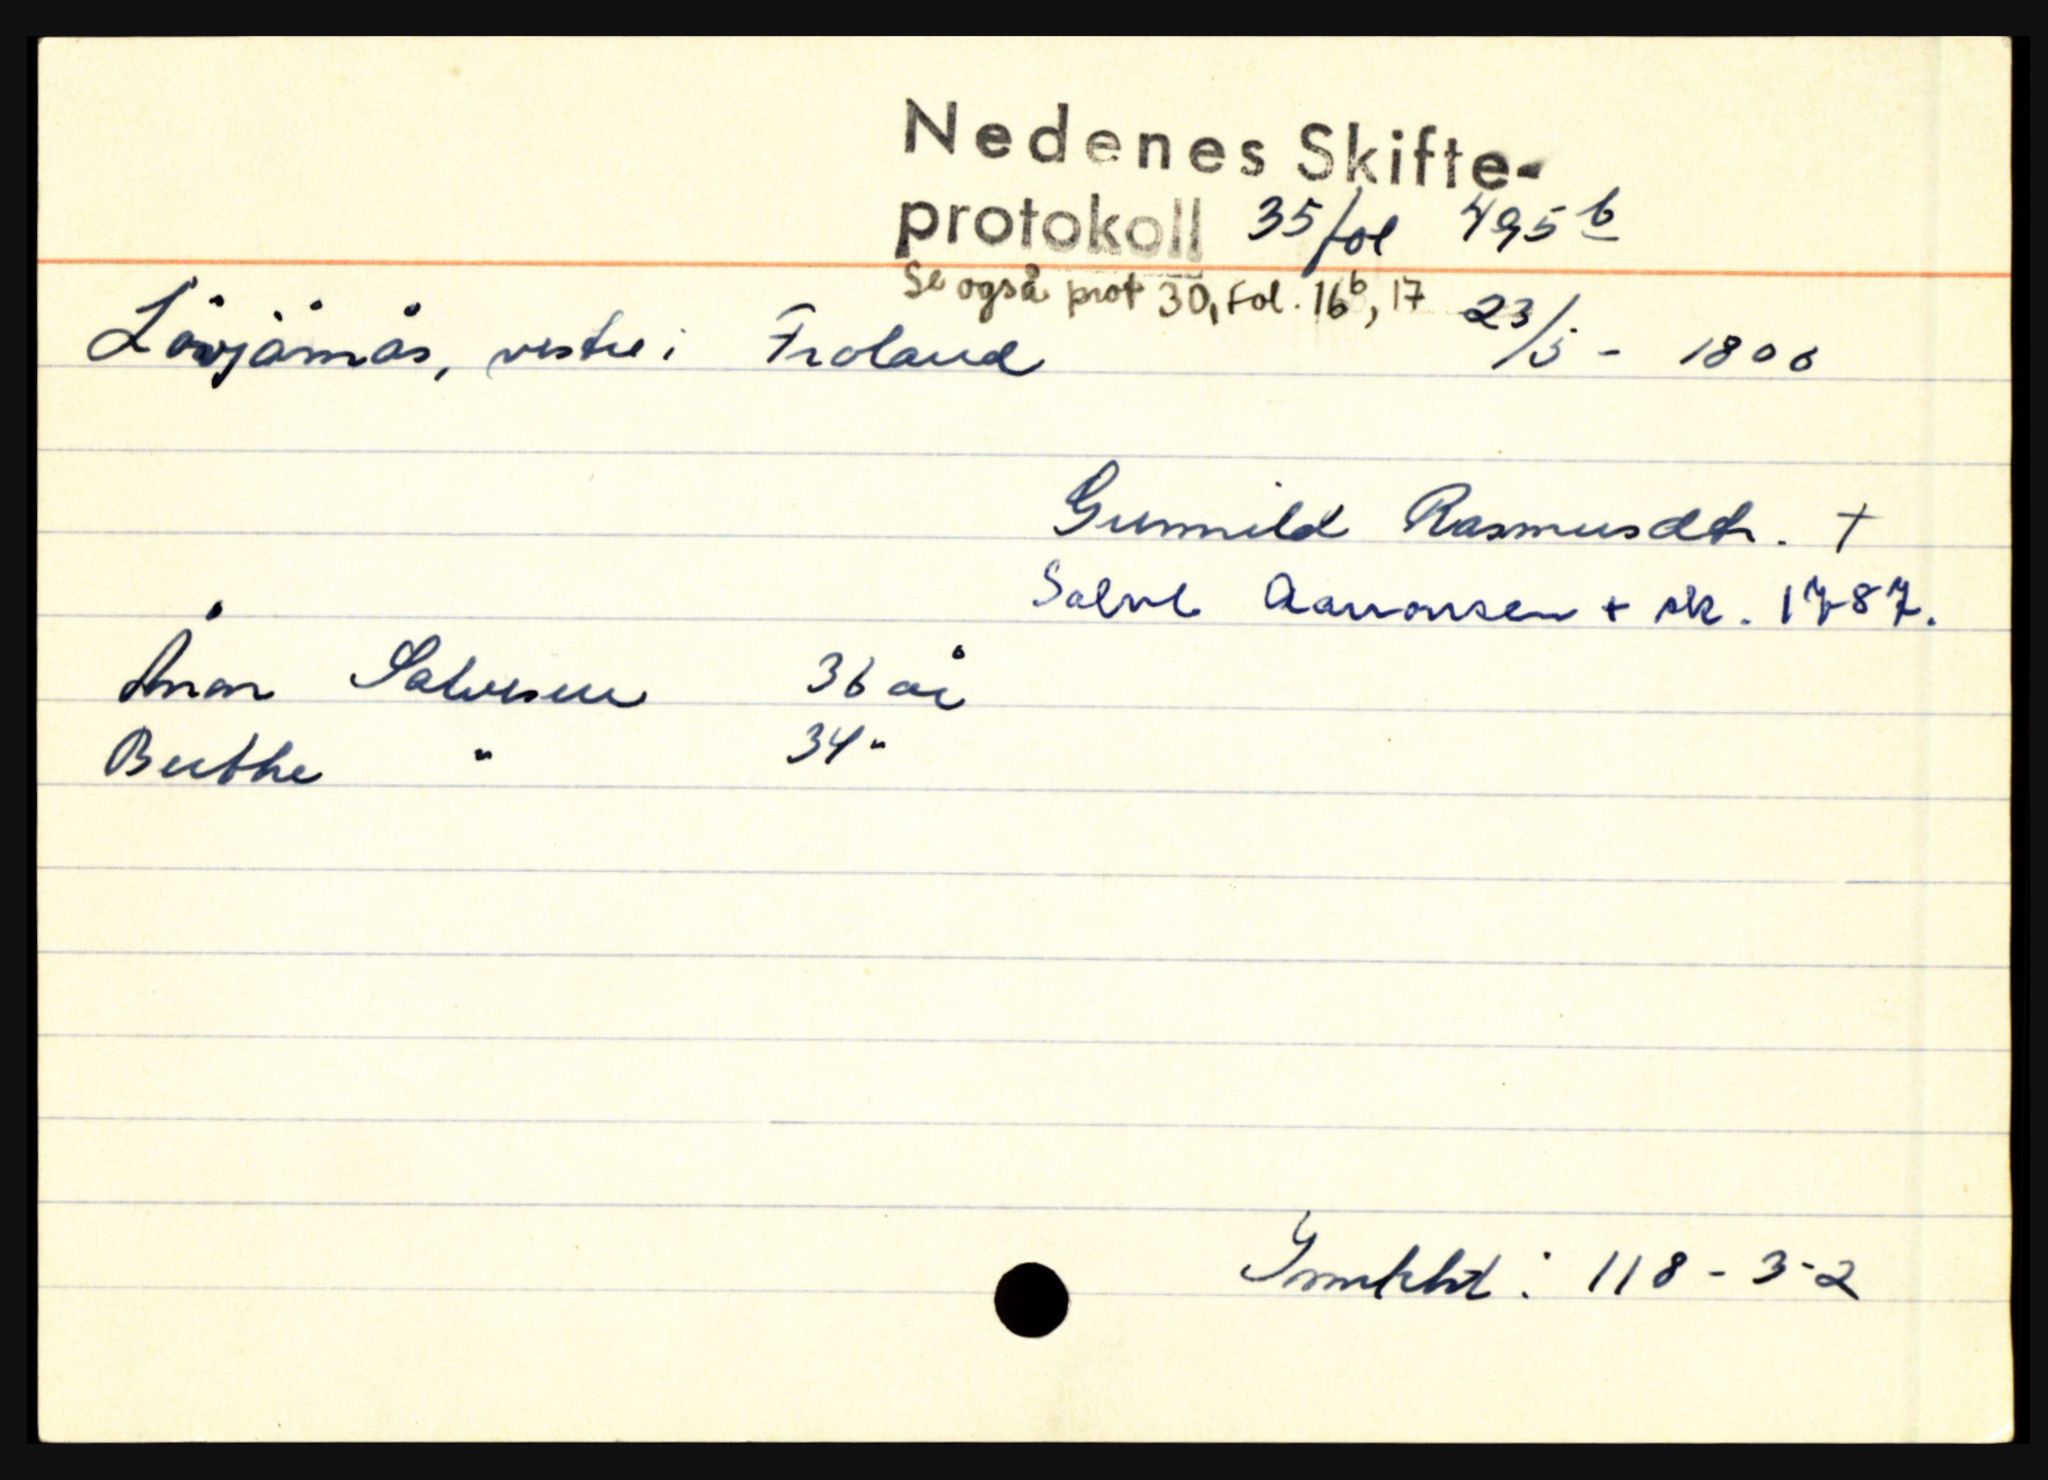 Nedenes Skifte-
protokoll 35 fol 495 b
Se også prot 30, Fol. 16b, 17
Låvjåmås, vestre i Froland 23/5 - 1806
Gunnild Rasmusdtr. +
Salve Aanonsen + sk. 1787.
Ånon Salvesen 36 år
Berthe " 34 "
118-3-2